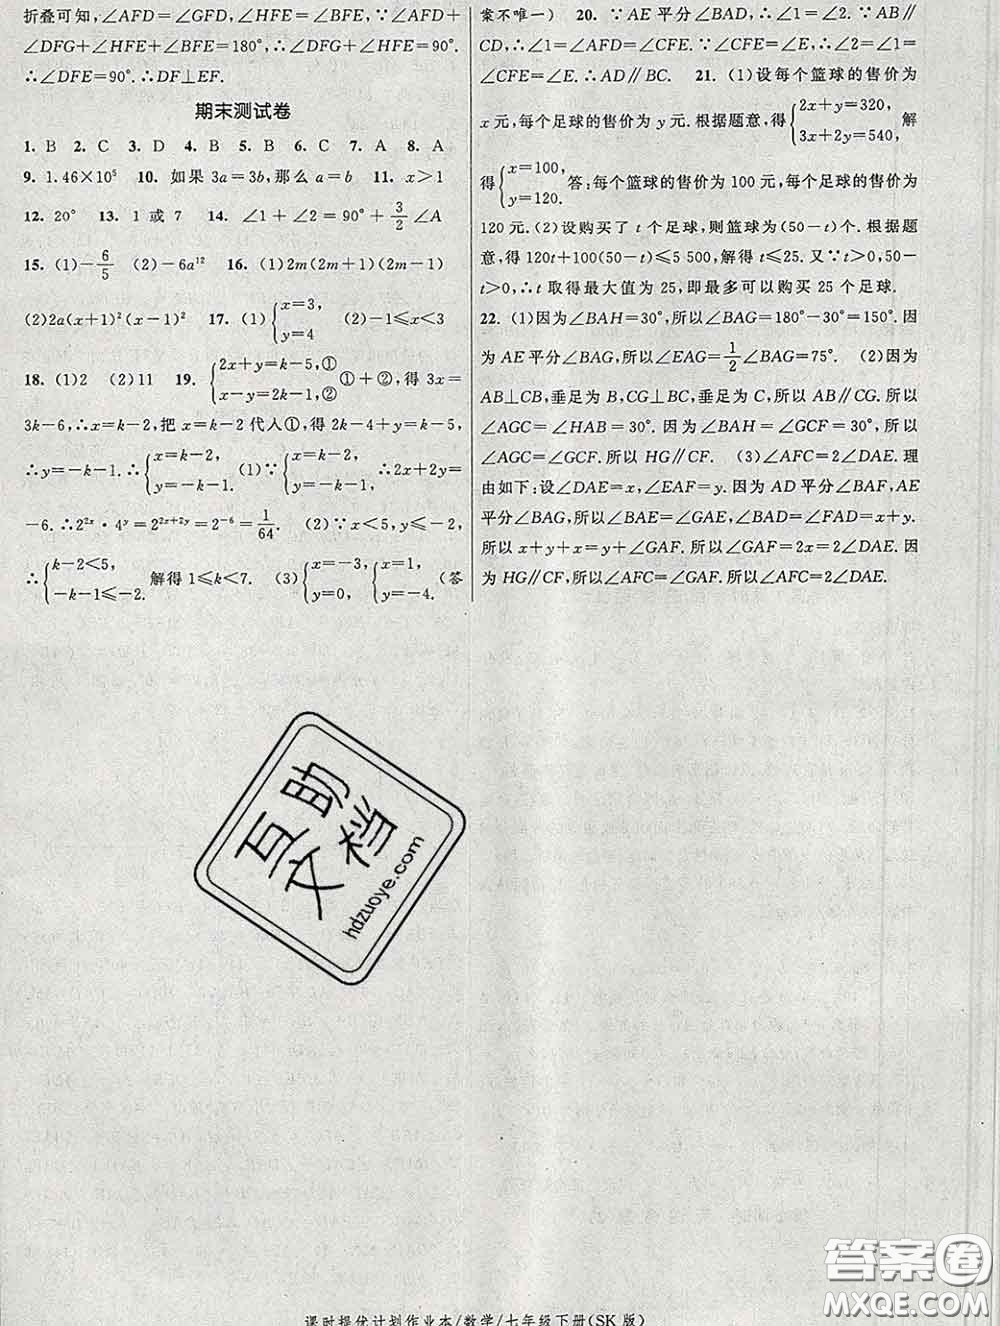 折叠可知,∠AFD=∠GFD,∠HFE=∠BFE,∵∠AFD+
∠DFG+∠HFE+∠BFE=180°,∴∠DFG+∠HFE=90°.
∴∠DFE=90°.∴DF⊥EF.
期末测试卷
1. B 2. C 3. D 4. B 5. B 6. C 7. A 8. A
9. 1.46×10⁵ 10. 如果 3a=3b,那么 a=b 11. x>1
12. 20° 13. 1 或 7 14. ∠1+∠2=90°+3/2∠A
15. (1)-6/5 (2)-6a¹² 16. (1)2m(2m+1)(2m-1)
(2)2a(x+1)²(x-1)² 17. (1){x=3, y=4 (2)-1≤x<3
18. (1)2 (2)11 19. {2x+y=k-5,① x-y=2k-1,② ①+②,得 3x=
3k-6,∴x=k-2,把 x=k-2 代人①,得 2k-4+y=k-5,
∴y=-k-1,∴{x=k-2, y=-k-1. (1)∵{x=k-2, y=-k-1. ∴2x+2y=
-6.∴2²ˣ·4ʸ=2²ˣ⁺²ʸ=2⁻⁶=1/64. (2)∵x<5,y≤-2,
∴{k-2<5, -k-1≤-2. 解得 1≤k<7. (3){x=-3, y=0, {x=1, y=-4. (答
案不唯一) 20. ∵AE 平分∠BAD,∴∠1=∠2.∵AB∥
CD,∴∠1=∠AFD=∠CFE.∵∠CFE=∠E,∴∠2=∠1=
∠CFE=∠E.∴AD∥BC. 21. (1)设每个篮球的售价为
x 元,每个足球的售价为 y 元.根据题意,得{2x+y=320, 3x+2y=540, 解
得{x=100, y=120. 答:每个篮球的售价为 100 元,每个足球的售价为
120 元.(2)设购买了 t 个足球,则篮球为(50-t)个.根据题
意,得 120t+100(50-t)≤5 500,解得 t≤25.又∵t>0,50-
t>0,∴t 取得最大值为 25,即最多可以购买 25 个足球.
22. (1)因为∠BAH=30°,所以∠BAG=180°-30°=150°.因
为 AE 平分∠BAG,所以∠EAG=1/2∠BAG=75°. (2)因为
AB⊥CB,垂足为 B,CG⊥BC,垂足为 C,所以 AB∥CG.所以
∠AGC=∠HAB=30°.因为∠BAH=∠GCF=30°,所以
∠AGC=∠GCF.所以 HG∥CF. (3)∠AFC=2∠DAE.理
由如下:设∠DAE=x,∠EAF=y.因为 AD 平分∠BAF,AE
平分∠BAG,所以∠BAE=∠GAE,∠BAD=∠FAD=x+y.
所以 x+y+x=y+∠GAF.所以∠GAF=2x=2∠DAE.因
为 HG∥CF,所以∠AFC=∠GAF.所以∠AFC=2∠DAE.
互助
文档
hdzuoye.com
答案圈
MXQE.COM
课时提优计划作业本/数学/七年级下册(SK 版)